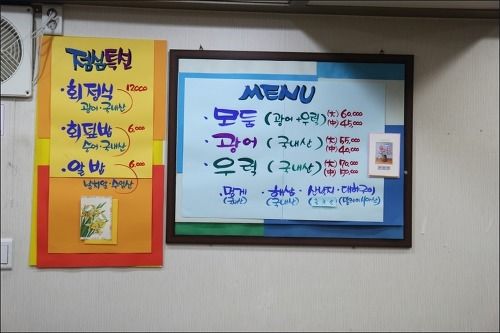 점심특선
·회정식 12000
광어·국내산
·회덮밥 6,000
숭어·국내산
·알밥 6,000
날치알·수입산
MENU
·모둠 (광어+우럭) (大) 60,000
(中) 45,000
·광어 (국내산) (大) 55,000
(中) 40,000
·우럭 (국내산) (大) 70,000
(中) 50,000
·멍게 ·해삼 ·산낙지 ·대하구이
(국내산)